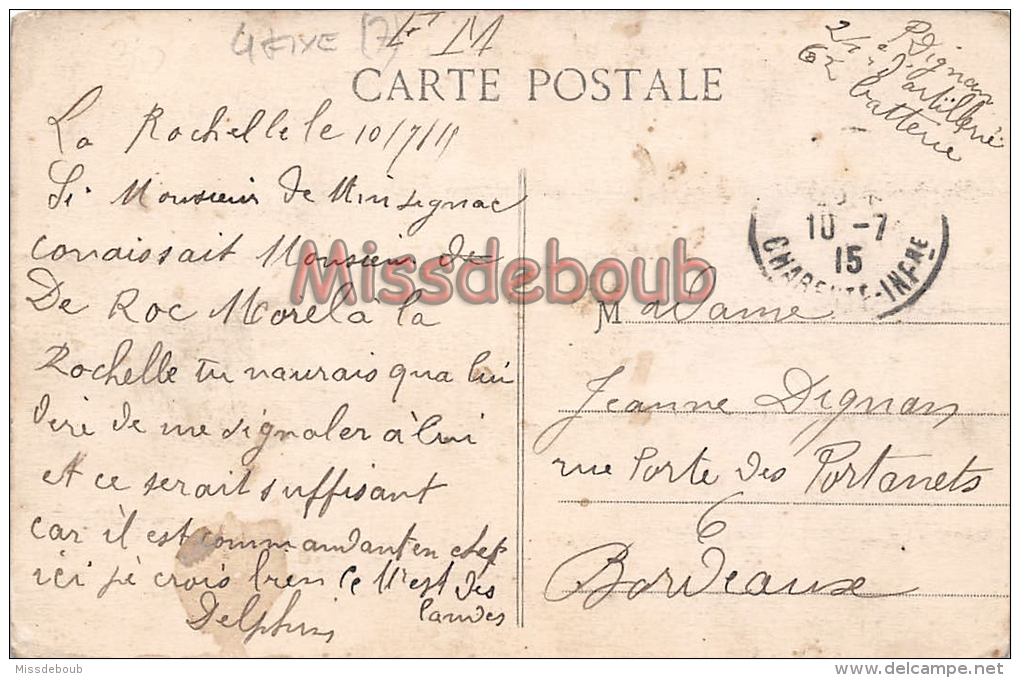 F M
CARTE POSTALE
Dignan
d'artillerie
batterie
La Rochelle le 10/7/15
Si Monsieur de Minsignac
conaissait Monsieur de
De Roc Morel à la
Rochelle tu naurais qua lui
dire de me signaler à lui
et ce serait suffisant
car il est commandant en chef
ici jè crois bien ce Mr est des
landes
Delphin
10 -7
15
CHARENTE-INFRE
Madame
Jeanne Dignan
rue Porte des Portanets
6
Bordeaux
Missdeboub
Missdeboub
www.delcampe.net